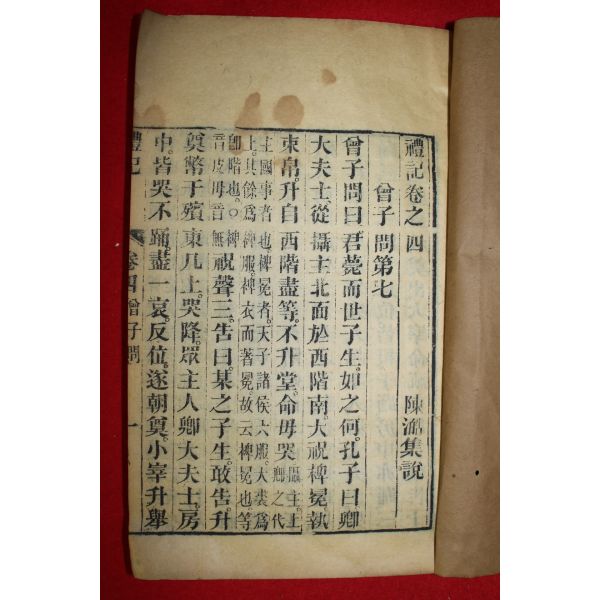 禮記卷之四 陳澔集說
曾子問第七
曾子問曰。君薨而世子生。如之何。孔子曰。卿
大夫士。從攝主北面於西階南。大祝裨冕。執
束帛。升自西階盡等。不升堂。命毋哭。攝主。上卿之代
主國事者也。裨冕者。天子諸侯六服。大裘爲
上。其餘爲裨服。裨衣而著冕。故云裨冕也。等
卽階也。○裨音皮。毋音無祝聲三。告曰。某之子生。敢告。升
奠幣于殯東几上。哭降。眾主人卿大夫士。房
中。皆哭不踊。盡一哀。反位。遂朝奠。小宰升舉
禮記 卷四曾子問 一